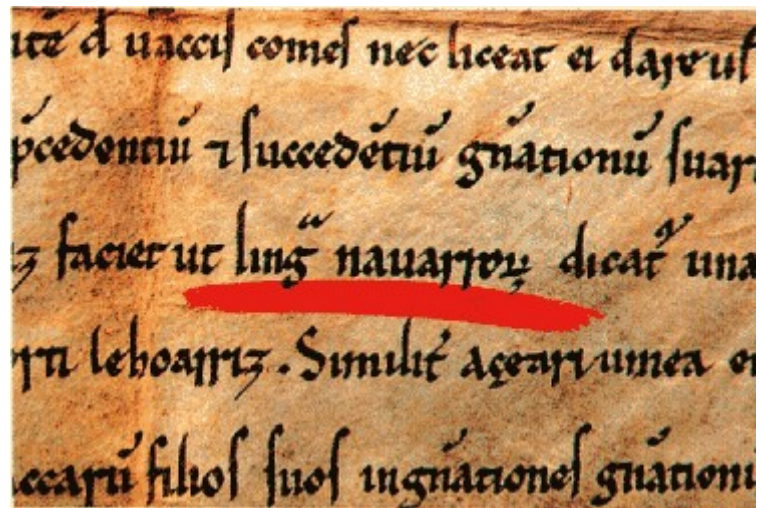 itē đ uaccis comes nec liceat ei dare ul
p̄cedentiū ⁊ succedētiū gn̄ationū suar
faciet ut lingᵃ nauarroꝝ dicat᷑ una
orti lehoarriz. Similit̄ açeari umea
ccarū filios suos in gn̄ationes gn̄ationū